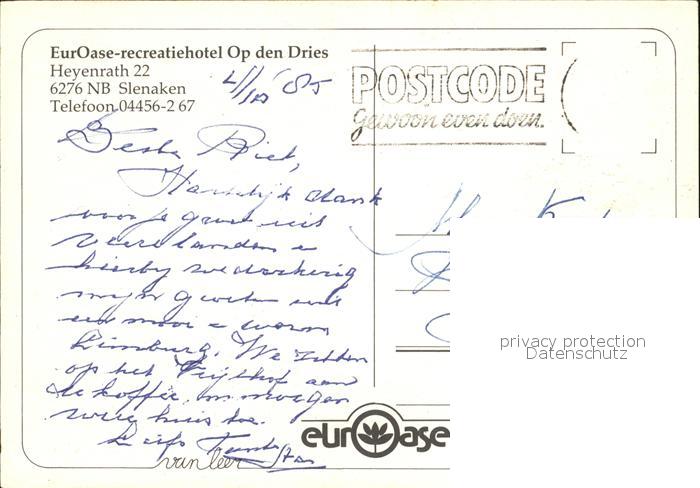 EurOase-recreatiehotel Op den Dries
Heyenrath 22
6276 NB Slenaken
Telefoon 04456-2 67
4/10 '85
POSTCODE
gewoon even doen.
Beste Riet,
Hartelijk dank
voor je groet uit
hierby wederkerig
mijn groeten uit
een mooi e warm
Limburg. We zitten
op het Vrijthof aan
de koffie, en morgen
weer huis toe.
Liefs
van leer
eurOase
privacy protection
Datenschutz